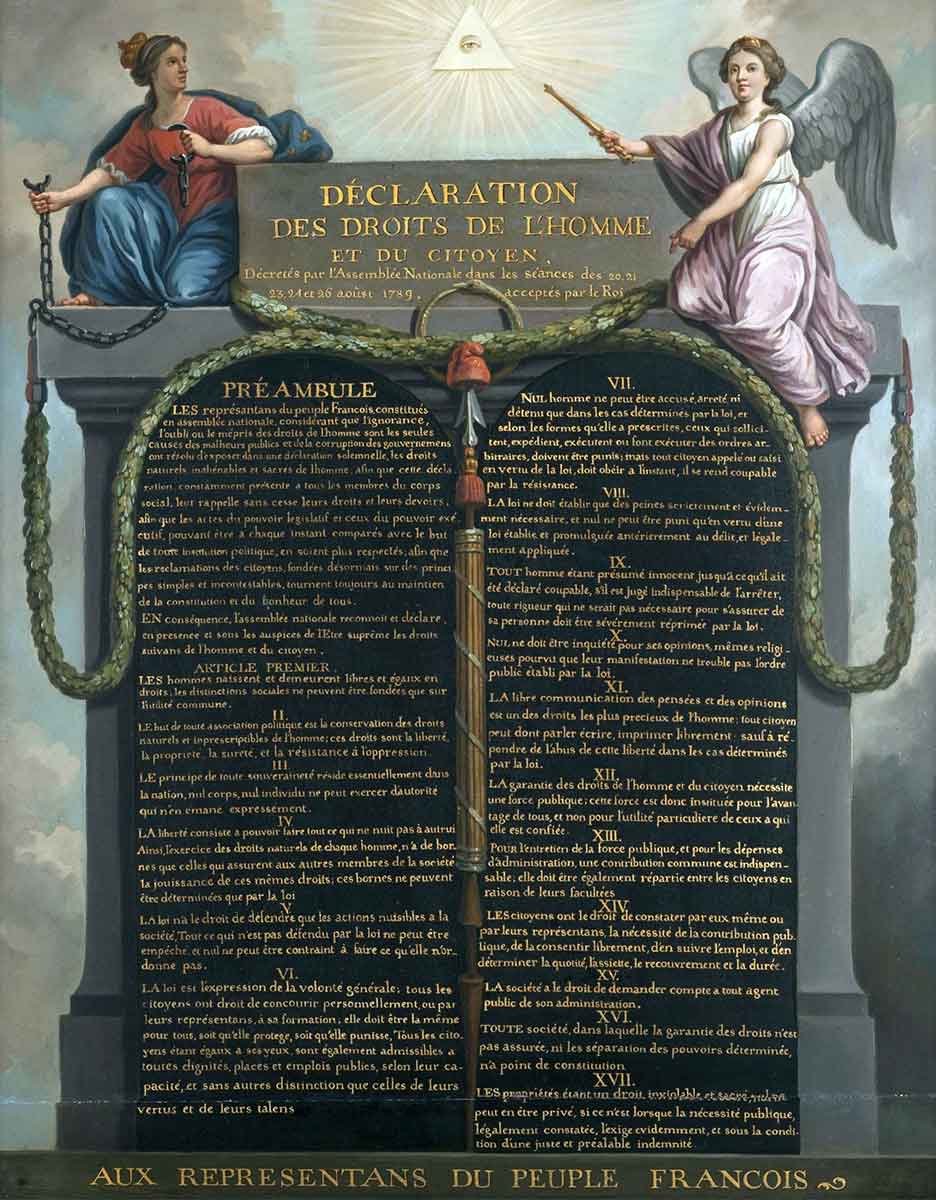 DÉCLARATION
DES DROITS DE L'HOMME
ET DU CITOYEN,
Décretés par l'Assemblée Nationale dans les séances des 20, 21
23, 24 et 26 aoûst 1789, acceptés par le Roi
PRÉAMBULE
LES représantans du peuple Francois, constitués
en assemblée nationale, considérant que l'ignorance,
l'oubli ou le mépris des droits de l'homme sont les seules
causes des malheurs publics et de la corruption des gouvernemens
ont résolu d'exposer dans une déclaration solemnelle, les droits
naturels, inaliénables et sacrés de l'homme; afin que cette décla
ration, constamment présente a tous les membres du corps
social, leur rappelle sans cesse leurs droits et leurs devoirs,
afin que les actes du pouvoir législatif et ceux du pouvoir exé-
cutif, pouvant être a chaque instant comparés avec le but
de toute institution politique, en soient plus respectés; afin que
les reclamations des citoyens, fondées désormais sur des princi
pes simples et incontestables, tournent toujours au maintien
de la constitution et du bonheur de tous.
EN conséquence, l'assemblée nationale reconnoit et déclare,
en presence et sous les auspices de l'Etre suprême les droits
suivans de l'homme et du citoyen.
ARTICLE PREMIER.
LES hommes naissent et demeurent libres et égaux en
droits, les distinctions sociales ne peuvent être fondées que sur
l'utilité commune.
II.
LE but de toute association politique est la conservation des droits
naturels et inprescriptibles de l'homme; ces droits sont la liberté,
la propriété, la sureté, et la résistance à l'oppression.
III.
LE principe de toute souveraineté réside essentiellement dans
la nation, nul corps, nul individu ne peut exercer d'autorité
qui n'en emane expressément.
IV
LA liberté consiste a pouvoir faire tout ce qui ne nuit pas à autrui
Ainsi, l'exercice des droits naturels de chaque homme, n'a de bor-
nes que celles qui assurent aux autres membres de la société
la jouissance de ces mêmes droits; ces bornes ne peuvent
être déterminées que par la loi
V.
LA loi n'a le droit de défendre que les actions nuisibles a la
société, Tout ce qui n'est pas défendu par la loi ne peut être
empêché, et nul ne peut être contraint à faire ce qu'elle n'or-
donne pas.
VI.
LA loi est l'expression de la volonté générale; tous les
citoyens ont droit de concourir personnellement, ou par
leurs représentans, à sa formation; elle doit être la même
pour tous, soit qu'elle protege, soit qu'elle punisse, Tous les cito
yens étant égaux à ses yeux, sont également admissibles a
toutes dignités, places et emplois publics, selon leur ca-
pacité, et sans autres distinction que celles de leurs
vertus et de leurs talens
VII.
NUL homme ne peut être accusé, arreté ni
détenu que dans les cas déterminés par la loi, et
selon les formes qu'elle a prescrites, ceux qui sollici-
tent, expédient, exécutent ou font exécuter des ordres ar-
bitraires, doivent être punis; mais tout citoyen appelé ou saisi
en vertu de la loi, doit obéir a l'instant, il se rend coupable
par la résistance.
VIII.
LA loi ne doit établir que des peines strictement et évidem-
ment nécessaire, et nul ne peut être puni qu'en vertu d'une
loi établie, et promulguée antérierement au délit, et légale-
ment appliquée.
IX.
TOUT homme étant présumé innocent jusqu'a ce qu'il ait
été déclaré coupable, s'il est jugé indispensable de l'arrêter,
toute rigueur qui ne serait pas nécessaire pour s'assurer de
sa personne doit être sévèrement réprimée par la loi.
X.
NUL ne doit être inquiété pour ses opinions, mêmes religi-
euses pourvu que leur manifestation ne trouble pas l'ordre
public établi par la loi.
XI.
LA libre communication des pensées et des opinions
est un des droits les plus precieux de l'homme; tout citoyen
peut donc parler écrire, imprimer librement: sauf à ré
pondre de l'abus de cette liberté dans les cas déterminés
par la loi.
XII.
LA garantie des droits de l'homme et du citoyen nécessite
une force publique; cette force est donc instituée pour l'avan
tage de tous, et non pour l'utilité particuliere de ceux a qui
elle est confiée.
XIII.
POUR l'entretien de la force publique, et pour les dépenses
d'administration, une contribution commune est indispen-
sable; elle doit être également répartie entre les citoyens en
raison de leurs facultées
XIV.
LES citoyens ont le droit de constater par eux même ou
par leurs représentans, la nécessité de la contribution pub-
lique, de la consentir librement, d'en suivre l'emploi, et d'en
déterminer la quotité, l'assiette, le recouvrement et la durée.
XV.
LA société a le droit de demander compte a tout agent
public de son administration.
XVI.
TOUTE société, dans laquelle la garantie des droits n'est
pas assurée, ni les séparation des pouvoirs déterminée,
n'a point de constitution
XVII.
LES propriétés étant un droit inviolable et sacré, nul ne
peut en être privé, si ce n'est lorsque la nécessité publique,
légalement constatée, l'exige evidemment, et sous la condi-
tion d'une juste et préalable indemnité.
AUX REPRESENTANS DU PEUPLE FRANCOIS